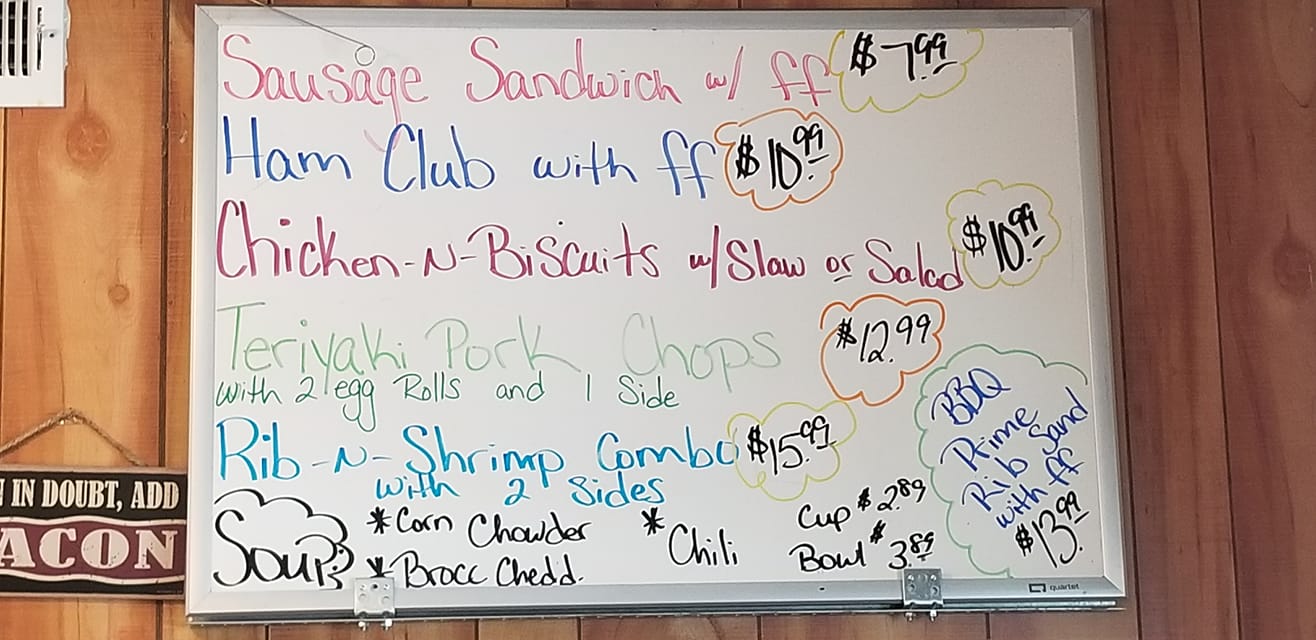 Sausage Sandwich w/ ff $7.99
Ham Club with ff $10.99
Chicken-N-Biscuits w/Slaw or Salad $10.99
Teriyaki Pork Chops $12.99
with 2 egg Rolls and 1 Side
Rib-N-Shrimp Combo $15.99
with 2 Sides
BBQ
Prime
Rib Sand
with ff
$13.99
Soups
*Corn Chowder
*Brocc Chedd.
*Chili
Cup $2.89
Bowl $3.89
quartet
IN DOUBT, ADD
ACON